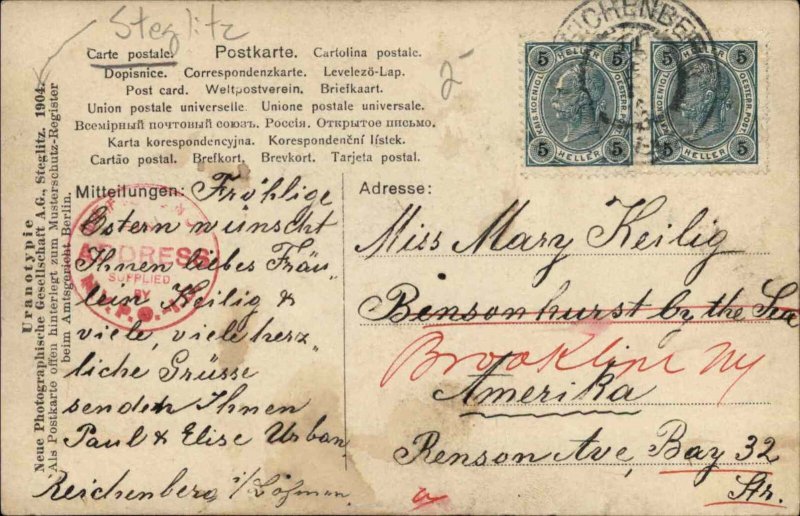 Steglitz
Carte postale. Postkarte. Cartolina postale.
Dopisnice. Correspondenzkarte. Levelező-Lap.
Post card. Weltpostverein. Briefkaart.
Union postale universelle. Unione postale universale.
Всемірный почтовый союзъ. Россія. Открытое письмо.
Karta korespondencyjna. Korespondenční lístek.
Cartão postal. Brefkort. Brevkort. Tarjeta postal.
2-
REICHENBER
5 5
KAIS. KOENIGL. OESTERR. POST
5 HELLER 5
5 5
KAIS. KOENIGL. OESTERR. POST
5 HELLER 5
Uranotypie
Neue Photographische Gesellschaft A.G., Steglitz. 1904.
Als Postkarte offen hinterlegt zum Musterschutz-Register
beim Amtsgericht Berlin.
Mitteilungen: Fröhlige
Ostern wünscht
Ihnen liebes Fräu„
lein Heilig &
viele, viele herz„
liche Grüsse
senden Ihnen
Paul & Elise Urban.
Reichenberg i/Böhmen.
ADDRESS
SUPPLIED
BY
Adresse:
Miss Mary Heilig
Bensonhurst by the Sea
Brookline Ny
Amerika
Benson Ave, Bay 32
Str.